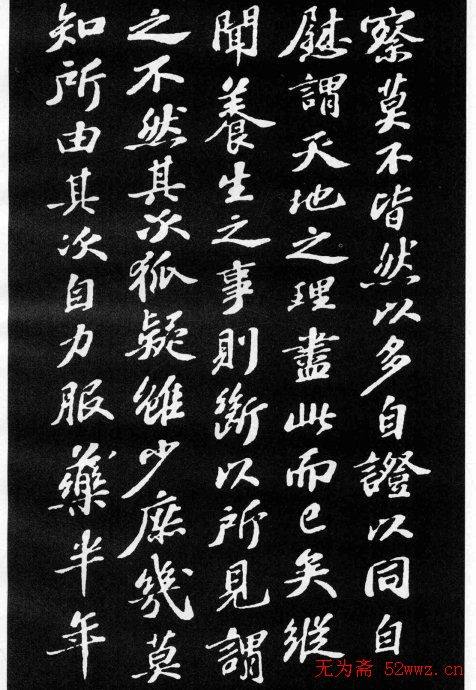 察莫不皆然以多自證以同自
慰謂天地之理盡此而已矣縱
聞養生之事則斷以所見謂
之不然其次狐疑雖少庶幾莫
知所由其次自力服藥半年
无为斋 52wwz.cn